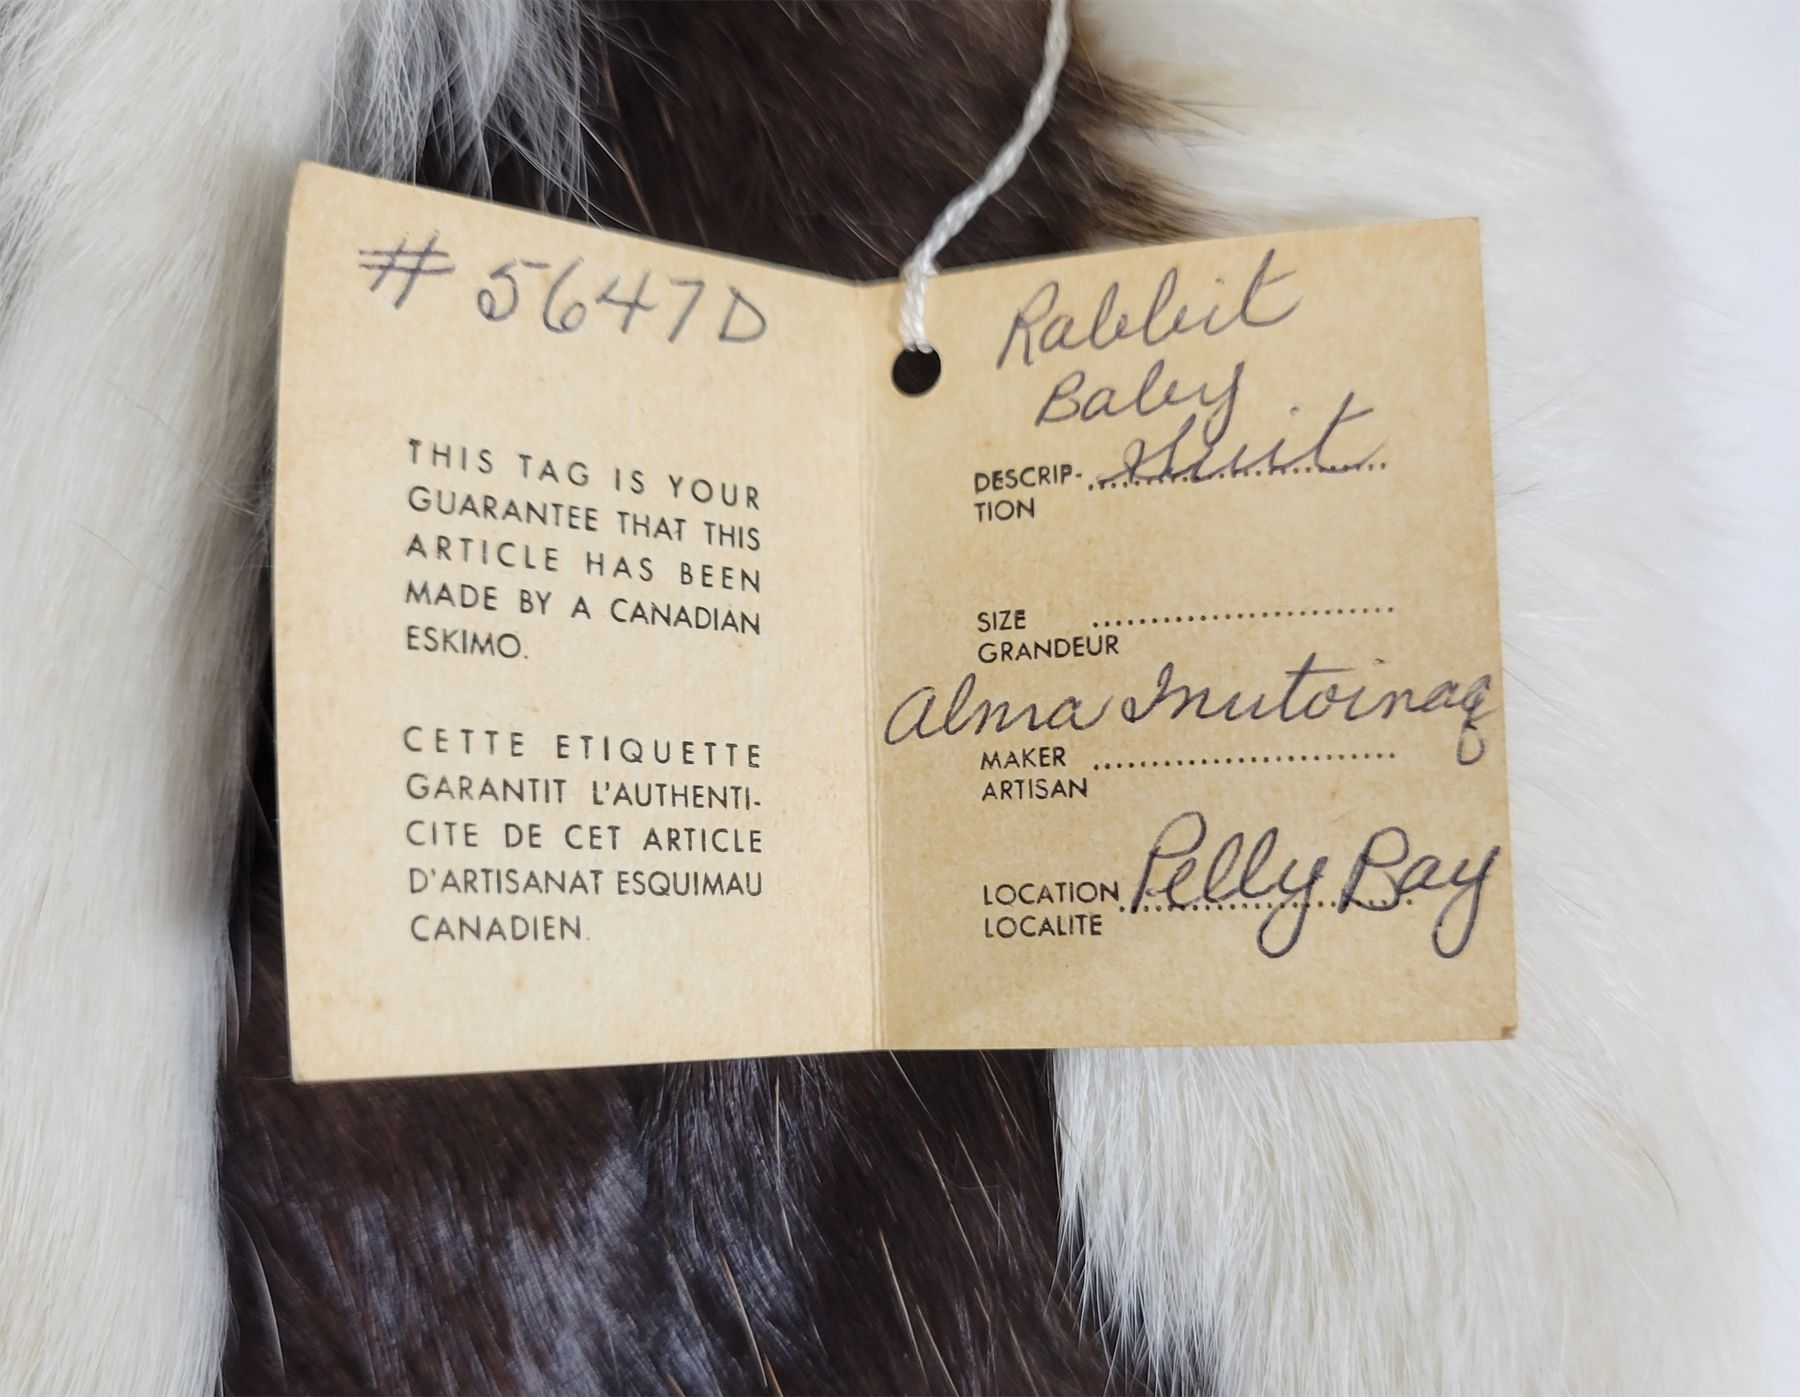 # 5647D
THIS TAG IS YOUR
GUARANTEE THAT THIS
ARTICLE HAS BEEN
MADE BY A CANADIAN
ESKIMO.
CETTE ETIQUETTE
GARANTIT L'AUTHENTI-
CITE DE CET ARTICLE
D'ARTISANAT ESQUIMAU
CANADIEN.
Rabbit
Baby
DESCRIP- Suit
TION
SIZE
GRANDEUR
Alma Inutoinaq
MAKER
ARTISAN
LOCATION Pelly Bay
LOCALITE